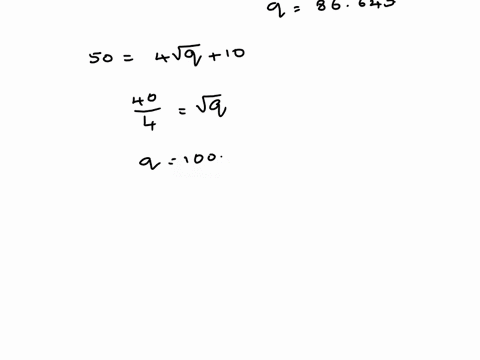 q = 86.645
50 = 4√q + 10
40/4 = √q
q = 100.